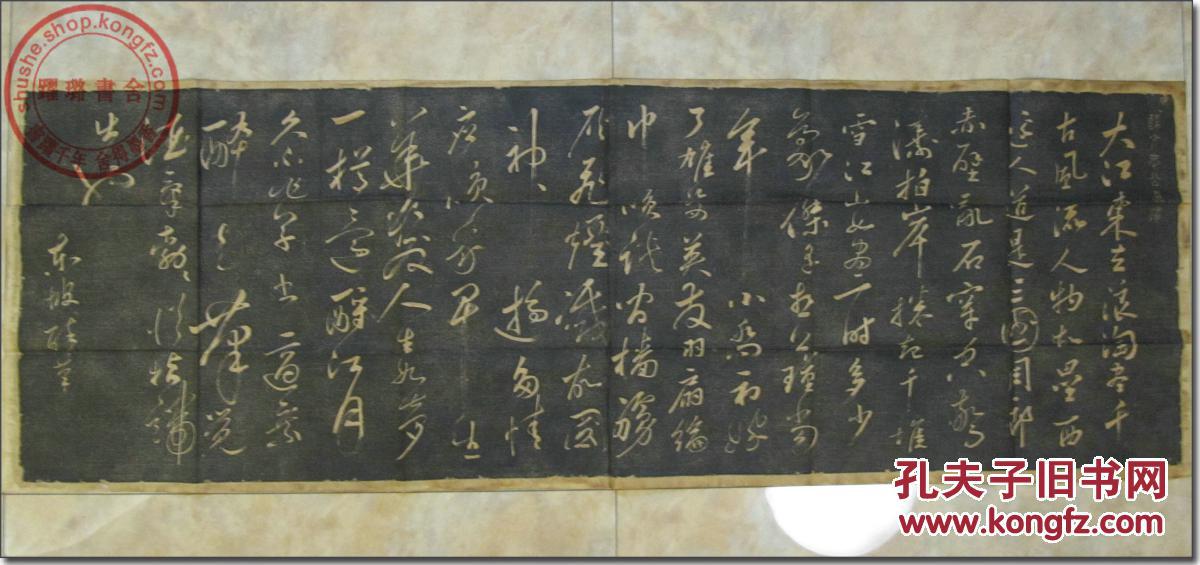 大江東去浪淘盡千
古風流人物故壘西
邊人道是三國周郎
赤壁亂石穿空驚
濤拍岸捲起千堆
雪江山如畫一時多少
豪傑遙想公瑾當
年小喬初嫁
了雄姿英發羽扇綸
巾笑談間檣艣
灰飛煙滅故國
神遊多情
應笑我早生
華髮人生如夢
一樽還酹江月
久不作草書適乘
醉走筆覺
酒氣勃勃從指端
出也
東坡醉草
shushe.shop.kongfz.com
躍璐書舍
孔夫子旧书网
www.kongfz.com